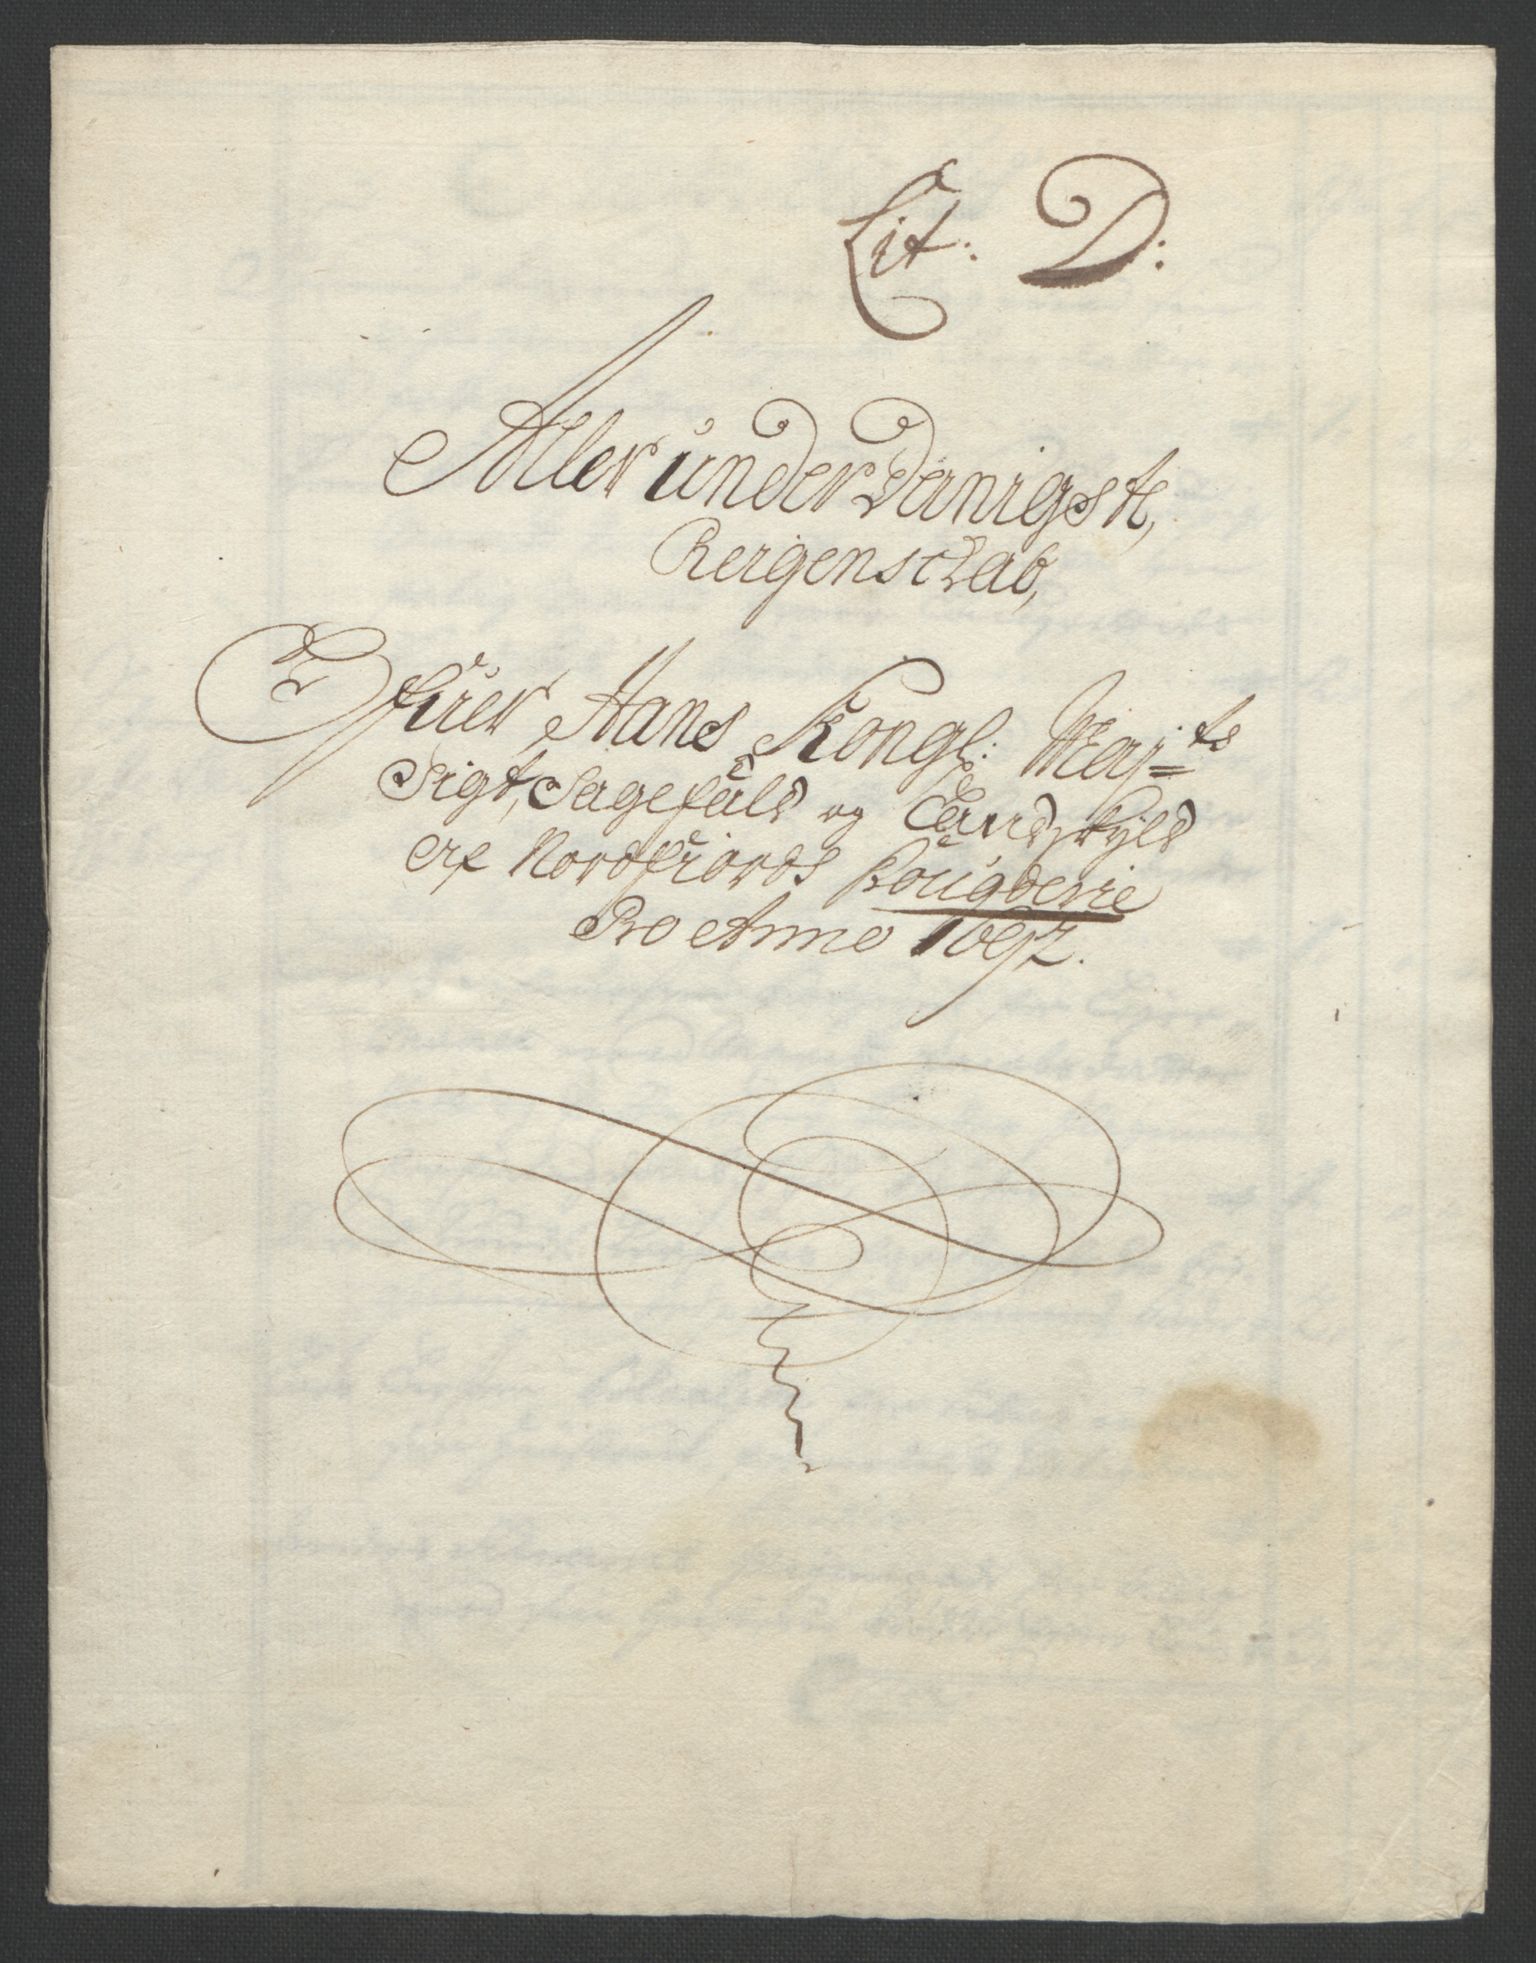 Lit. D:
Allerúnder Danigste,
Regenschab,
Ofúer Hans Kongl: Maj=ts
Sigt, Sagefald og Landschÿld
af Nordfiords fougderie
Pro Anno 1692.